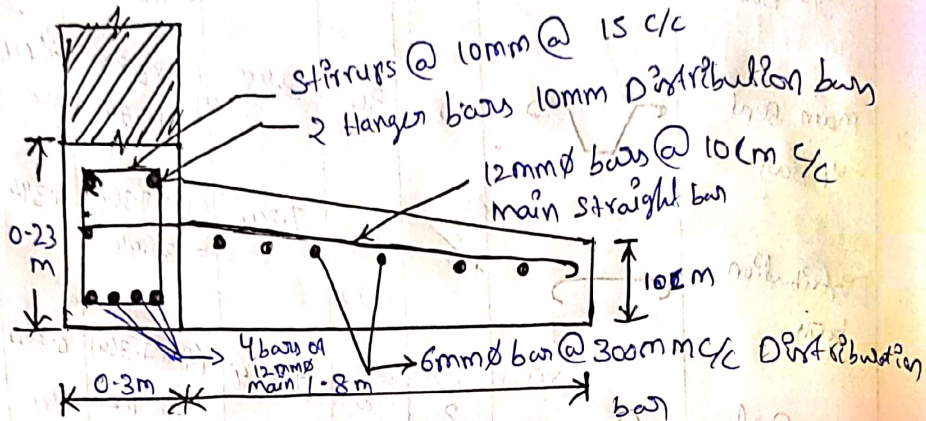 Stirrups @ 10mm @ 15 c/c
2 Hanger bars 10mm Distribution bars
12mmø bars @ 10cm c/c
main straight bar
0.23
m
10cm
4 bars of
12mmø
main
6mmø bar @ 300mm c/c Distribution
bar
0.3m
1.8m